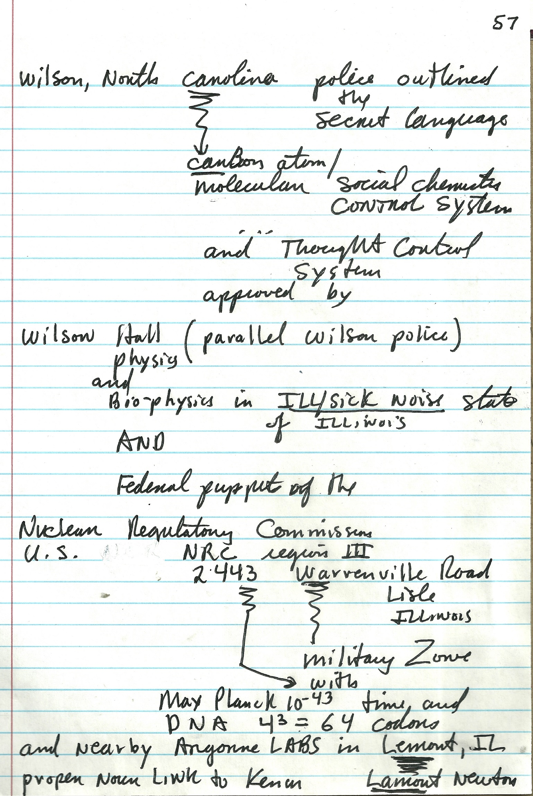 57
Wilson, North Carolina police outlined
the
Secret Language
carbon atom/
molecular social chemistry
CONTROL SYSTEM
and Thought Control
System
approved by
Wilson Hall (parallel Wilson police)
physics
and
Bio-physics in ILL/SICK NOISE state
of ILLINOIS
AND
Federal puppet of the
Nuclear Regulatory Commission
U.S. NRC region III
2443 Warrenville Road
Lisle
ILLINOIS
military Zone
with
Max Planck 10-43 time, and
DNA 43 = 64 codons
and nearby Argonne LABS in Lemont, IL
proper Noun LINK to Lamont Newton